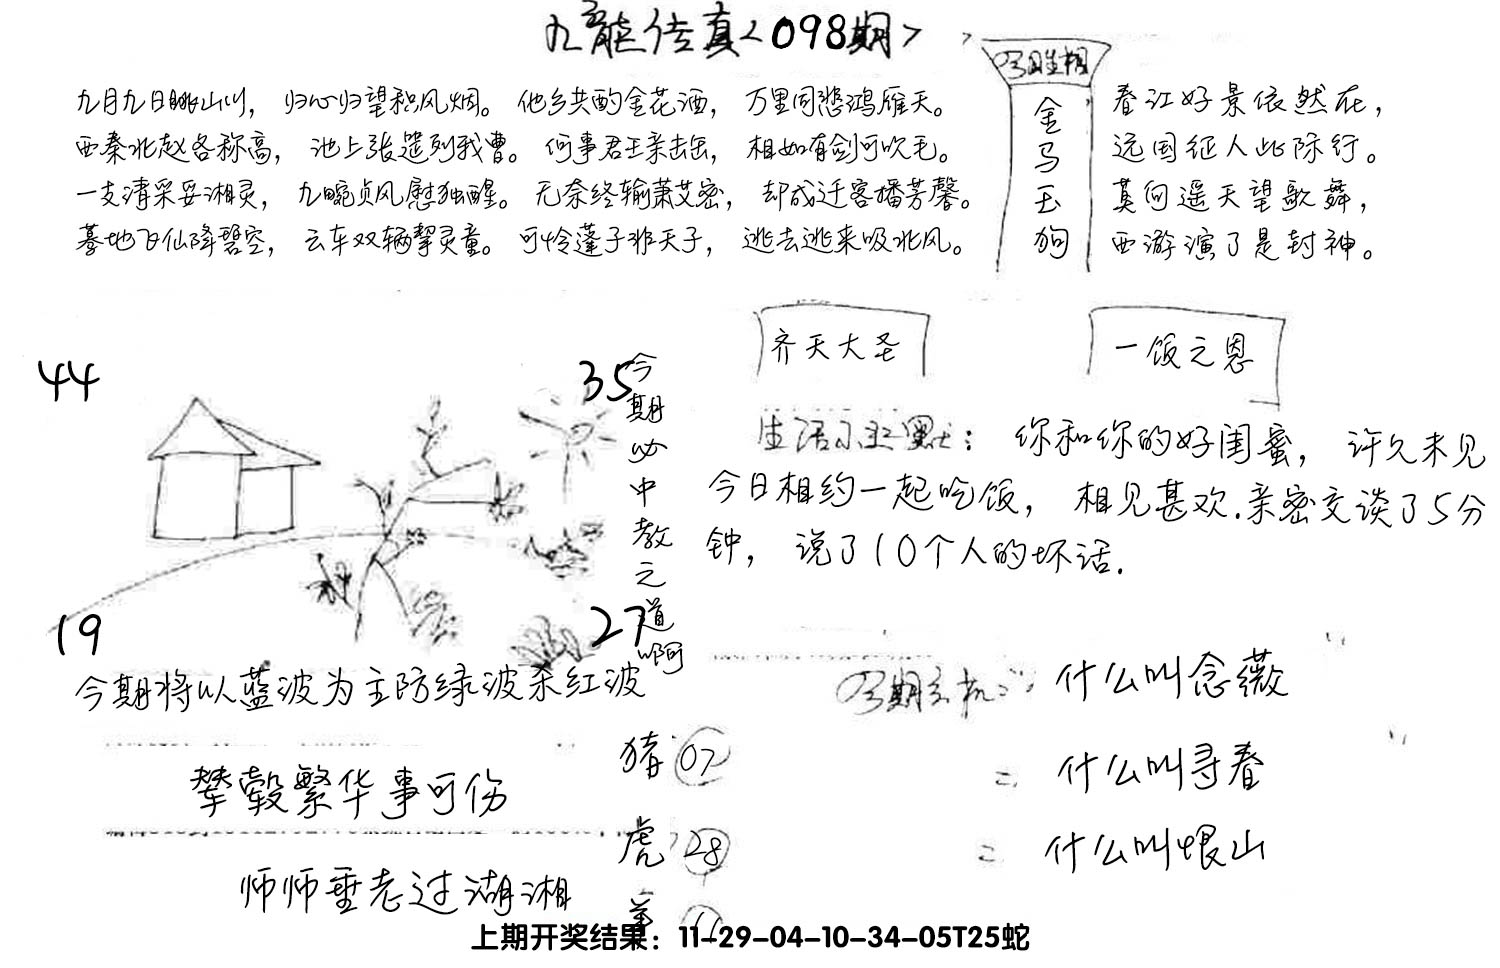 九龙传真<098期>
九月九日眺山川，归心归望积风烟。他乡共酌金花酒，万里同悲鸿雁天。
西秦北赵各称高，池上张筵列我曹。何事君王亲击缶，相如有剑可吹毛。
一支清采妥湘灵，九畹贞风慰独醒。无奈终输萧艾密，却成迁客播芳馨。
蓦地飞仙降碧空，云车双辆挈灵童。可怜蓬子非天子，逃去逃来吸北风。
金马玉狗
春江好景依然在，
远国征人此际行。
莫向遥天望歌舞，
西游演了是封神。
齐天大圣
一饭之恩
44
35
19
27
今期必中教之道啊
今期将以蓝波为主防绿波杀红波
生活小幽默：你和你的好闺蜜，许久未见
今日相约一起吃饭，相见甚欢.亲密交谈了5分
钟，说了10个人的坏话.
什么叫念薇
二 什么叫寻春
二 什么叫恨山
辇毂繁华事可伤
师师垂老过湖湘
猪 07
虎 28
羊
上期开奖结果：11-29-04-10-34-05T25蛇